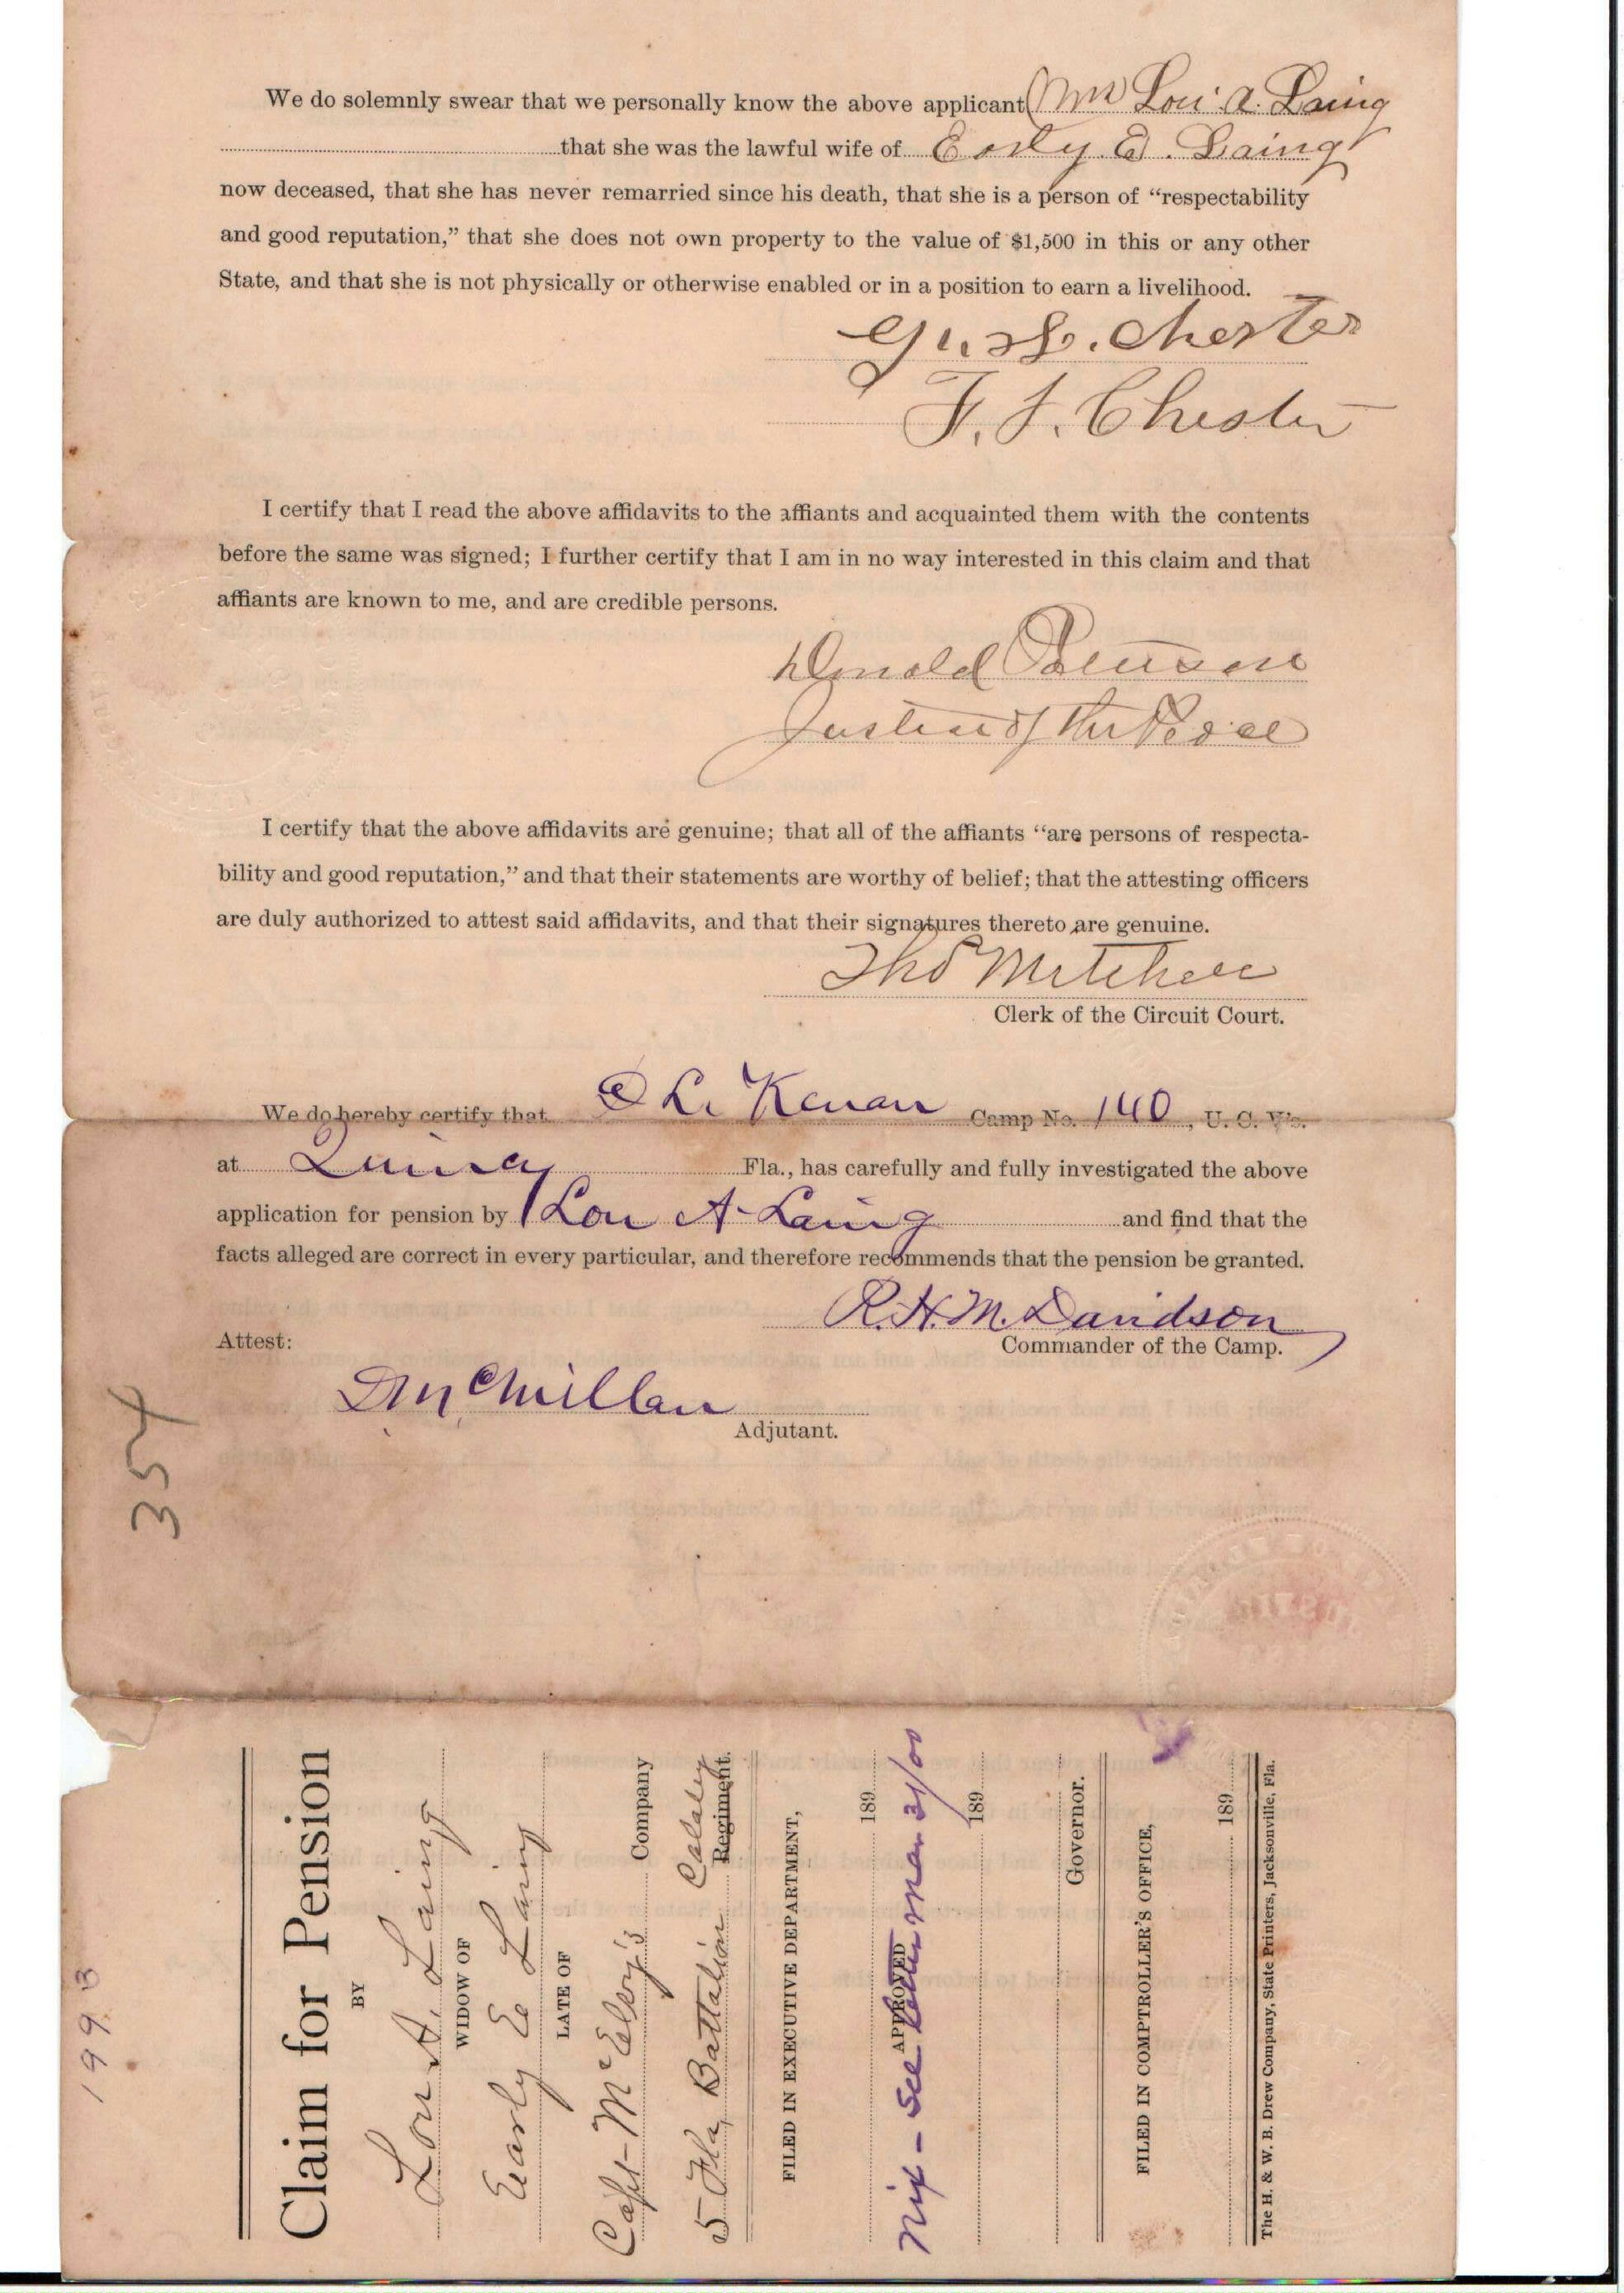 We do solemnly swear that we personally know the above applicant Mrs Lou A. Laing
that she was the lawful wife of Early E. Laing
now deceased, that she has never remarried since his death, that she is a person of “respectability
and good reputation,” that she does not own property to the value of $1,500 in this or any other
State, and that she is not physically or otherwise enabled or in a position to earn a livelihood.
Chester
F. J. Chester
I certify that I read the above affidavits to the affiants and acquainted them with the contents
before the same was signed; I further certify that I am in no way interested in this claim and that
affiants are known to me, and are credible persons.
Donald
Justice of the Peace
I certify that the above affidavits are genuine; that all of the affiants “are persons of respecta-
bility and good reputation,” and that their statements are worthy of belief; that the attesting officers
are duly authorized to attest said affidavits, and that their signatures thereto are genuine.
Tho Mitchell
Clerk of the Circuit Court.
We do hereby certify that D L. Kenan Camp No. 140, U. C. V's.
at Quincy Fla., has carefully and fully investigated the above
application for pension by Lou A. Laing and find that the
facts alleged are correct in every particular, and therefore recommends that the pension be granted.
R. H. M. Davidson
Commander of the Camp.
Attest:
D McMillan
Adjutant.
354
1993
Claim for Pension
BY
Lou A. Laing
WIDOW OF
Early E Laing
LATE OF
Capt- McElvy's Company
5 Fla, Battalion Cavalry Regiment.
FILED IN EXECUTIVE DEPARTMENT,
189
APPROVED
Nix - See letter mar 31/00
189
Governor.
FILED IN COMPTROLLER'S OFFICE,
189
The H. & W. B. Drew Company, State Printers, Jacksonville, Fla.